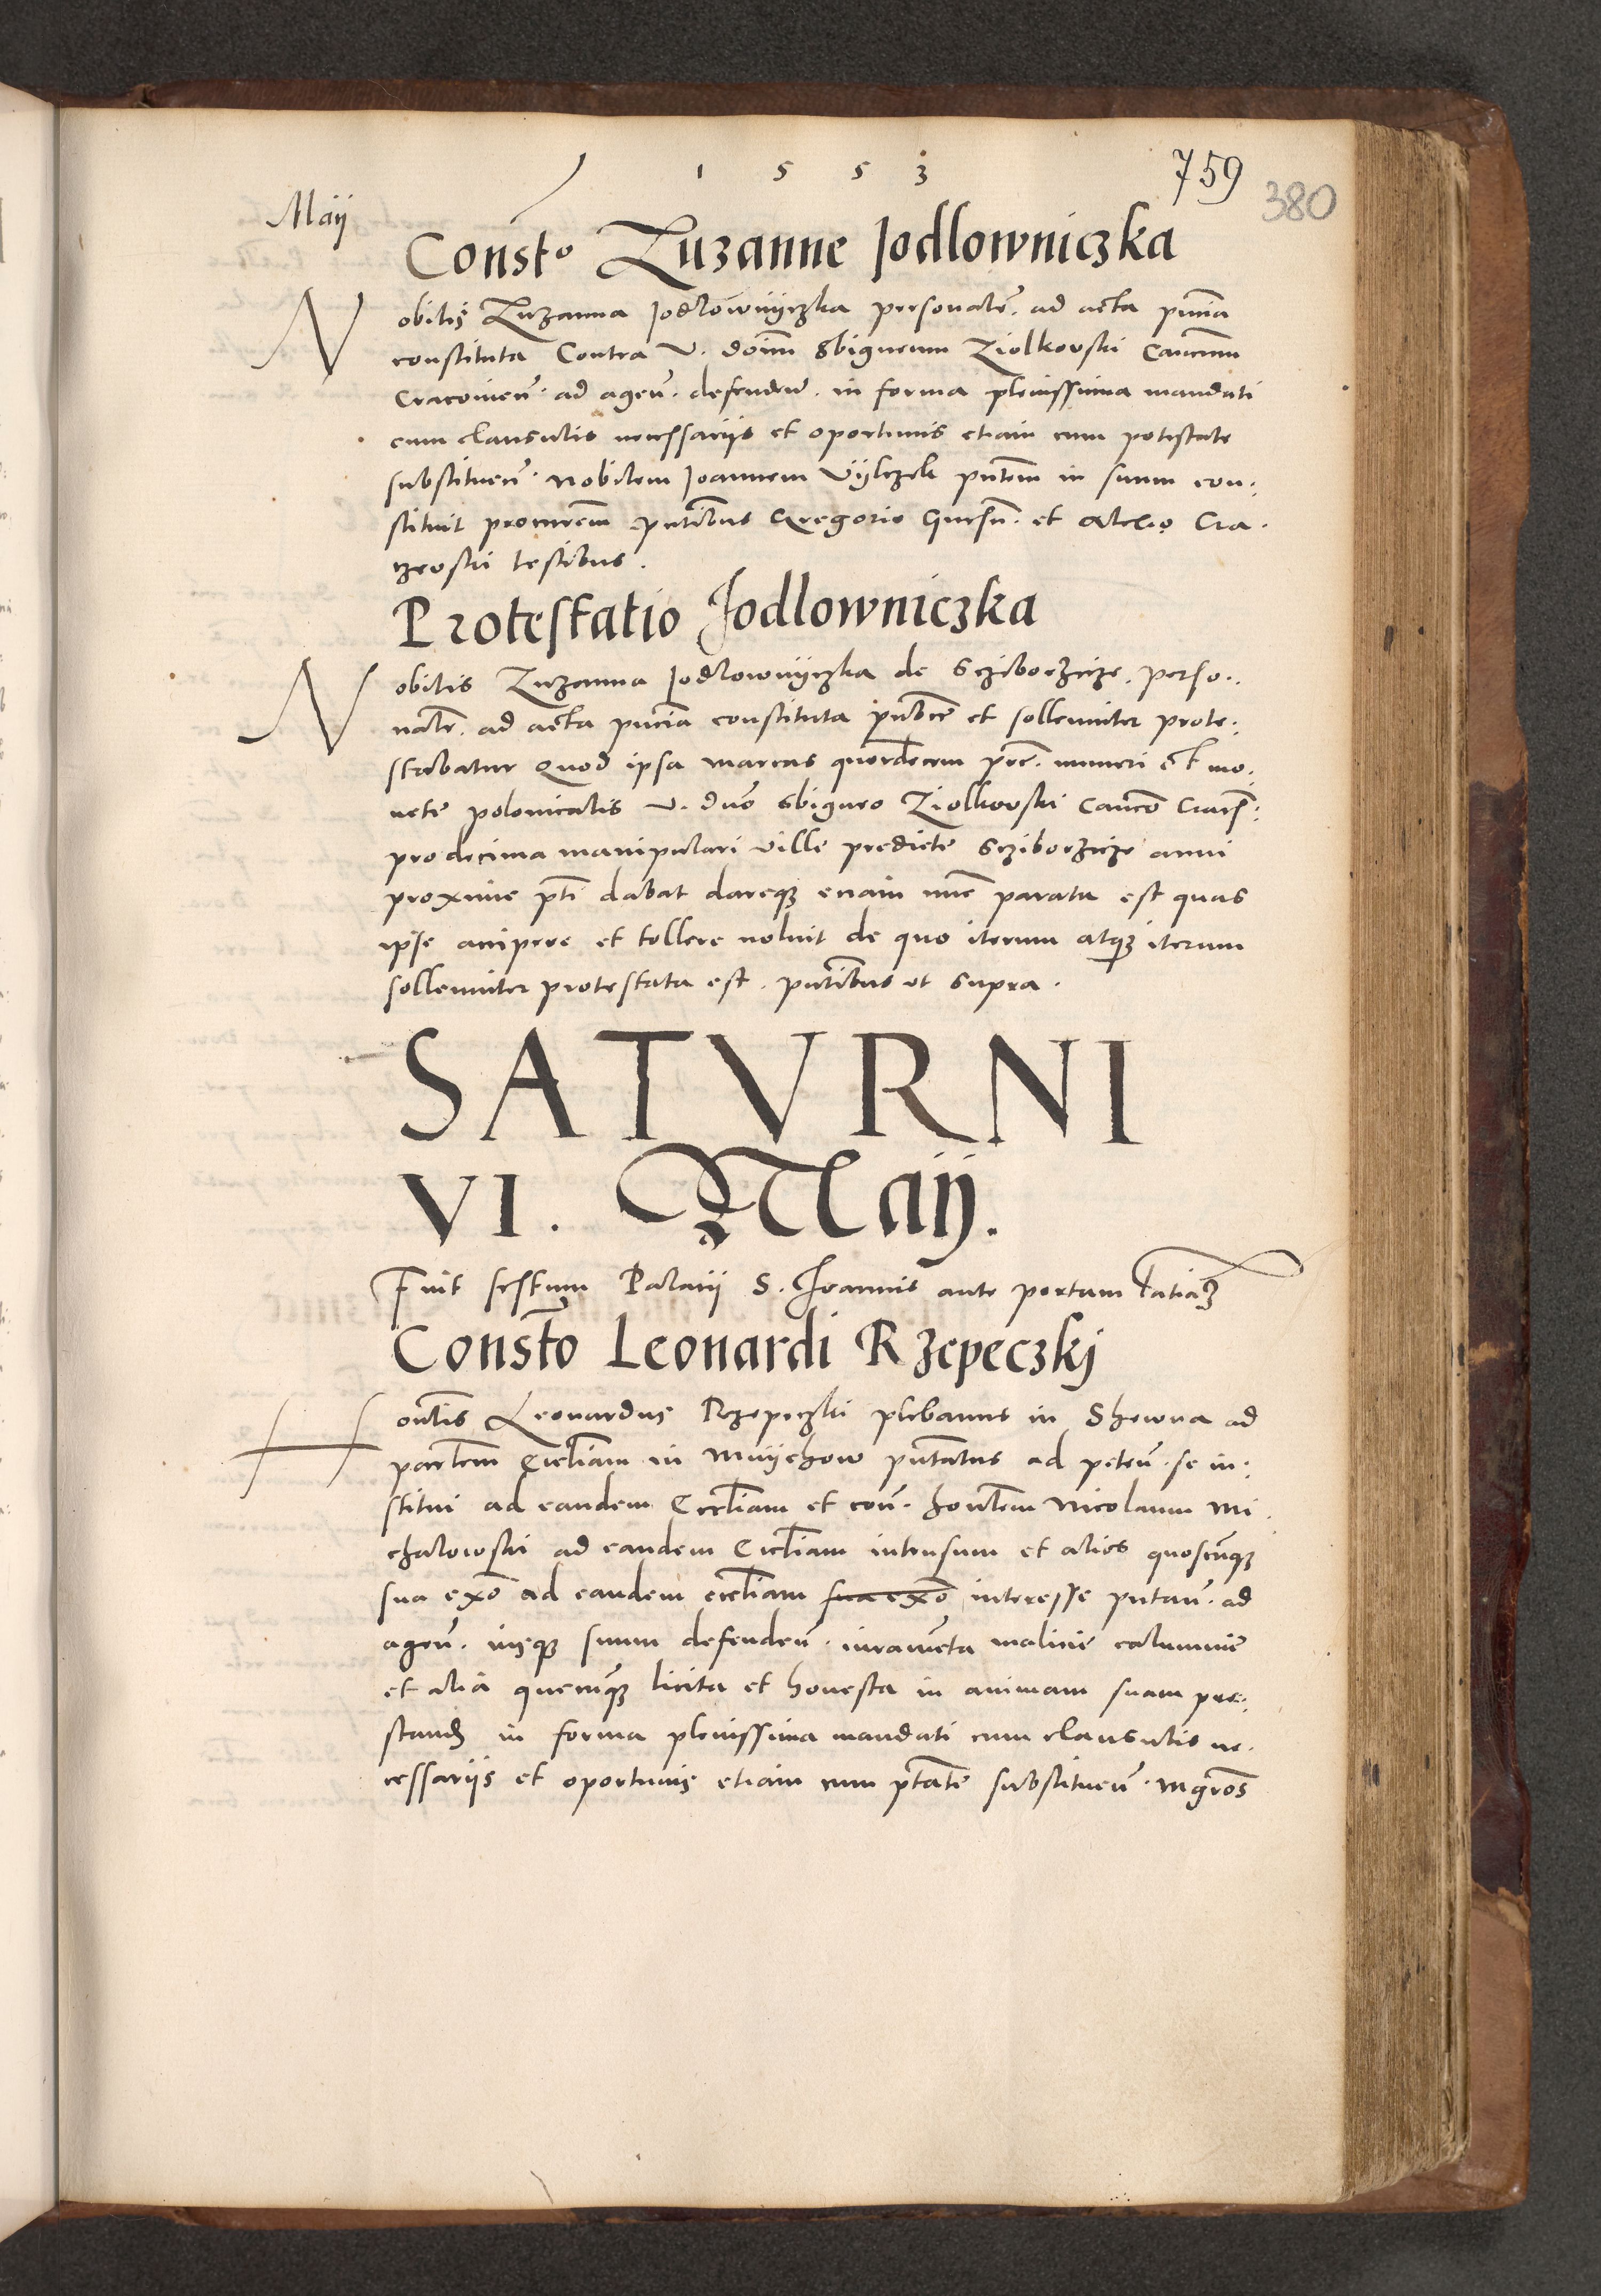 1 5 5 3
759
380
Maij
Consto Zuzanne Jodlowniczka
Nobilis Zuzanna Jodlownyczka personalr̃. ad acta pn̄cia
constituta Contra V. doīm Sbigneum Ziolkovski Canc̄um
Cracovien̄. ad agen̄. defenden̄. in forma plenissima mandati
cum clausulis necessariis et oportunis etiam cum potestate
substituen̄. Nobilem Joannem Vylczek pn̄tem in suum con:
stituit procurem pn̄tibus Gregorio et Alexio Cra.
czevski testibus.
Protestatio Jodlowniczka
Nobilis Zuzanna Jodlownyczka de Scziborzicze. perso..
nalr̃. ad acta pn̄cia constituta publice et sollemniter prote:
stabatur Quod ipsa marcas numeri et mo.
nete polonicalis V. dn̄o Sbigneo Ziolkovski Canc̄o Crac̄:
pro decima manipulari ville predicte Scziborzicze anni
proxime pt̄i dabat dareq3 etiam nunc̄ parata est quas
ipse accipere et tollere noluit de quo iterum atq3 iterum
sollemniter protestata est. pn̄tibus ut supra.
SATVRNI
VI. Maij.
Fuit festum Palacii S. Joannis ante portam latiā3
Consto Leonardi Rzepeczkj
Honlis Leonardus Rzepeczki plebanus in ad
partem Ecc̄liam in Mnychow pn̄tatus ad peten̄. se in:
stitui ad eandem Ecc̄liam et con̄. honlem Nicolaum Mi.
chalowski ad eandem Ecc̄liam intrusum et alios quoscunq3
sua exo ad eandem ecc̄liam sua exo interesse putan̄. ad
agen̄. iusq3 suum defenden̄. iuramēta malicie calumnie
et alia quecunq3 licita et honesta in animam suam pre:
stand in forma plenissima mandati cum clausulis ne.
cessariis et oportunis etiam cum ptate substituen̄. Mgros